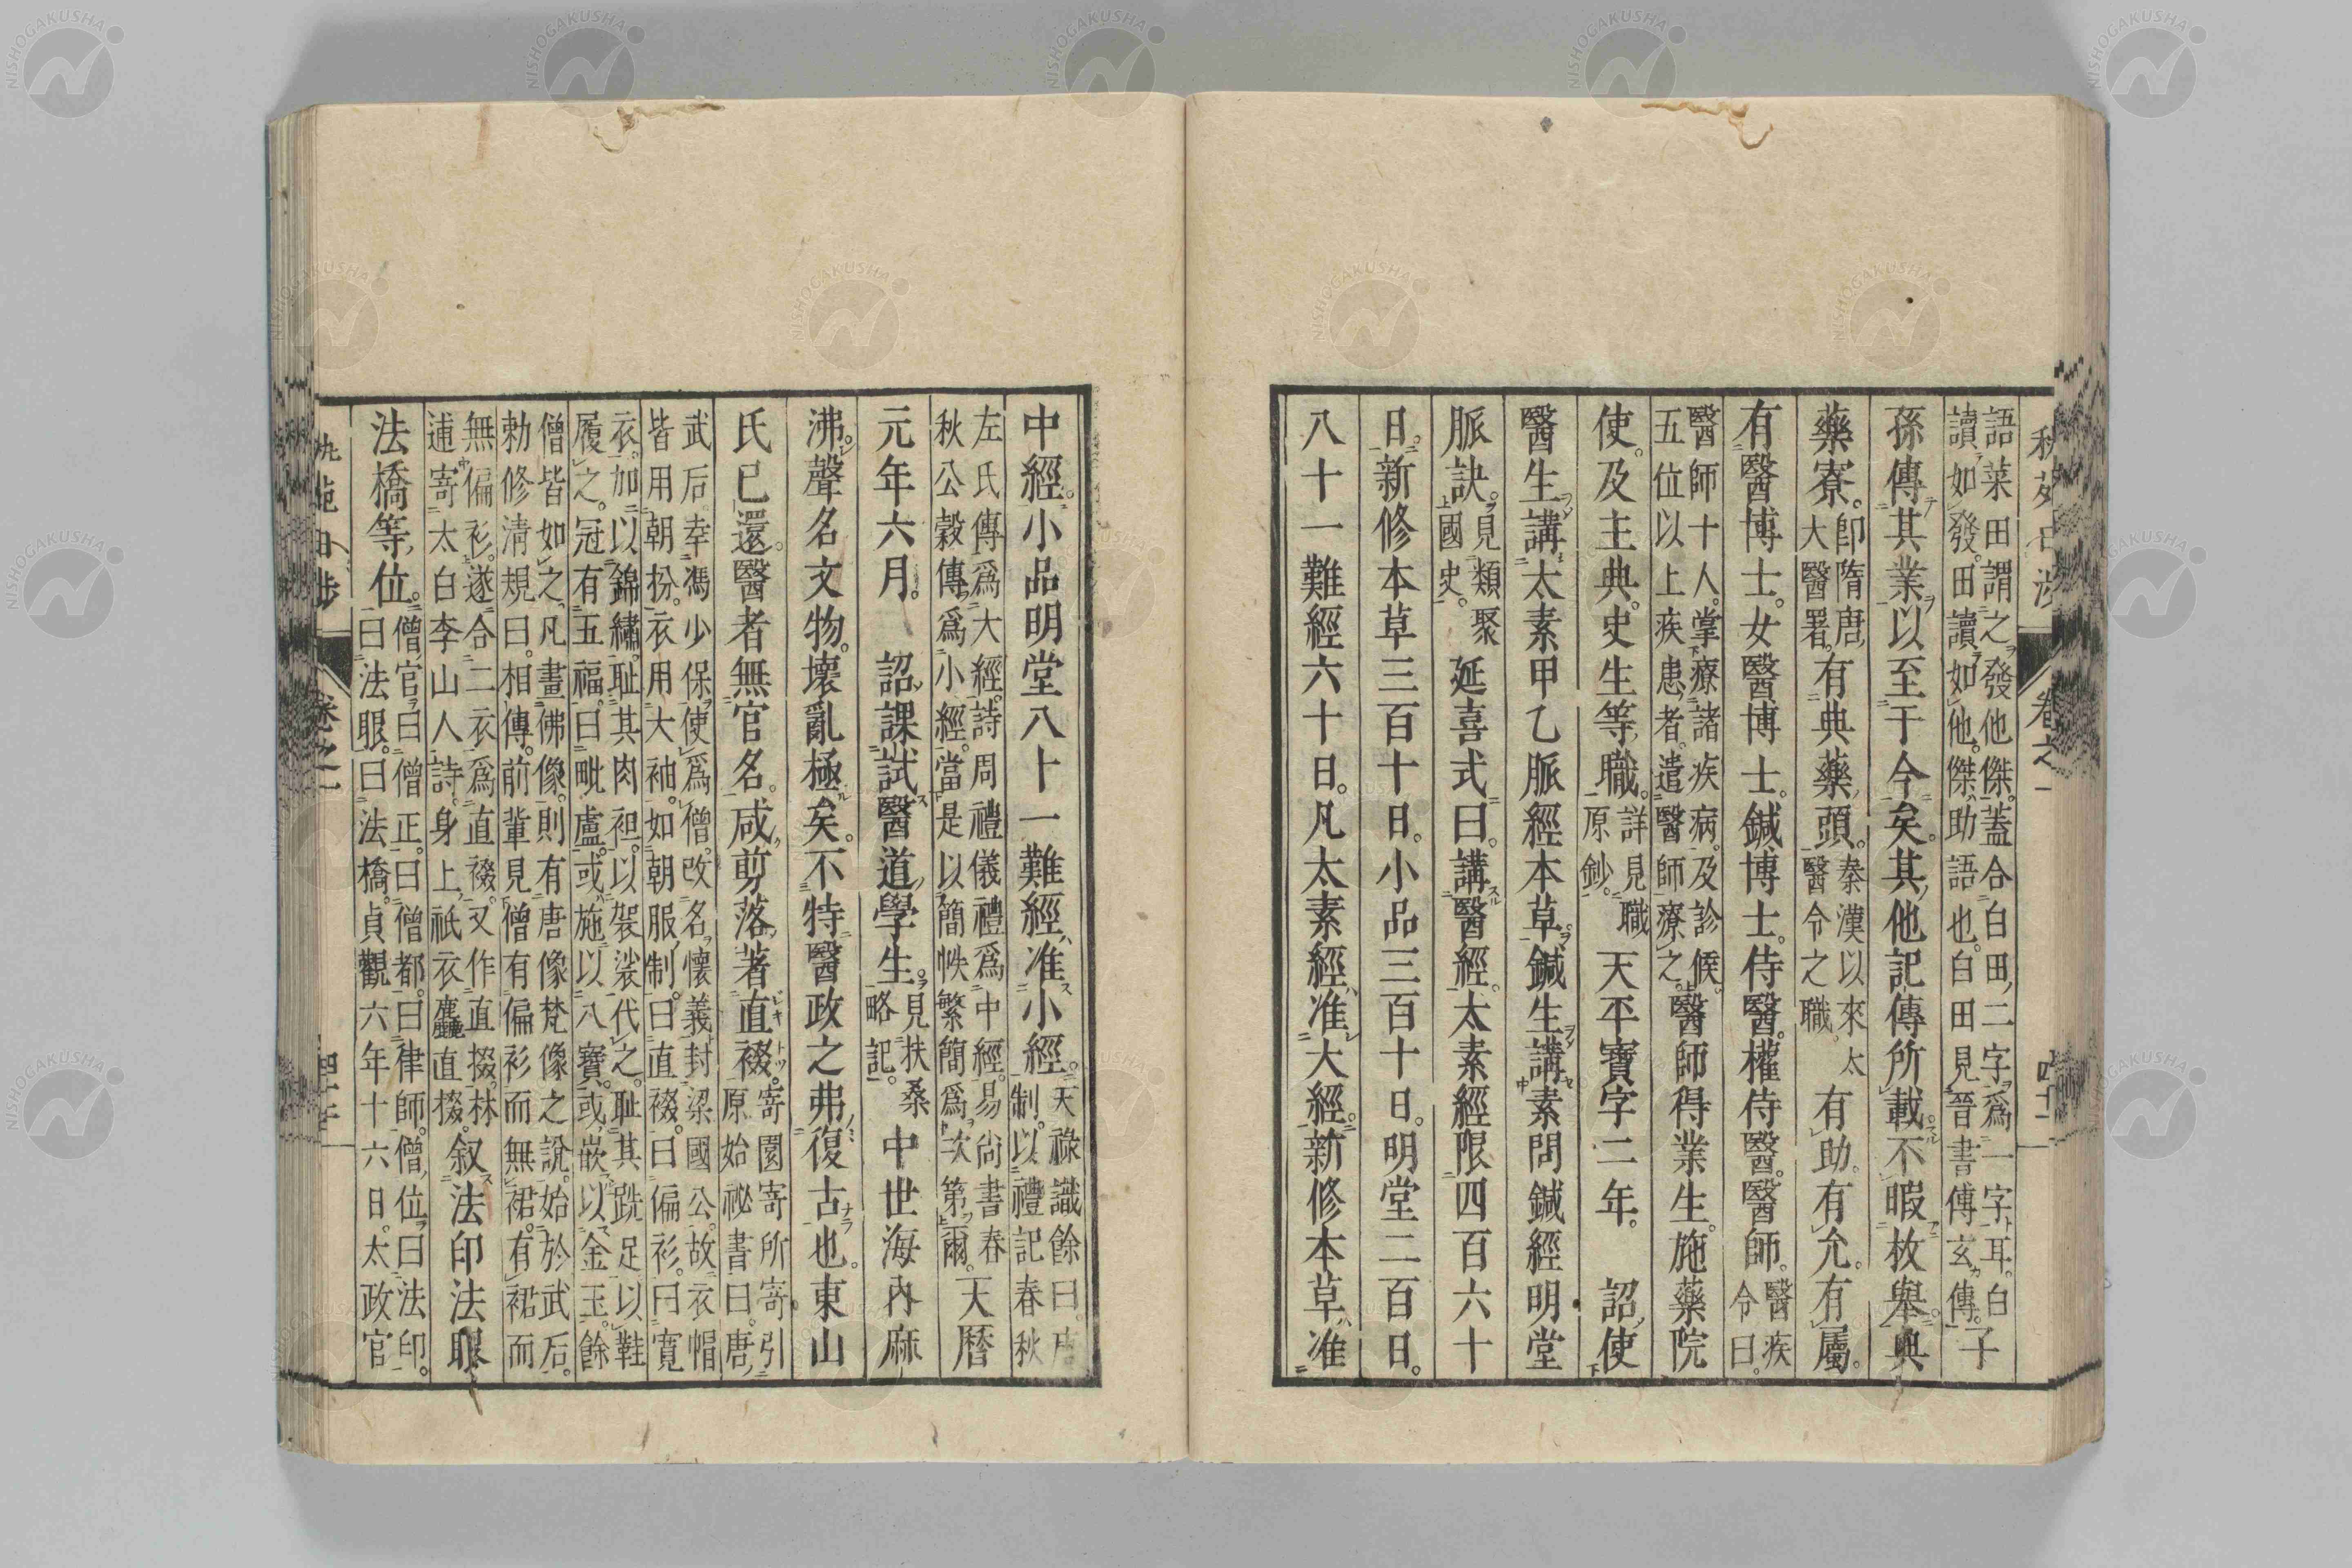 語菜田謂之發他傑蓋合白田二字爲一字耳白
讀如發田讀如他傑助語也白田見晉書傅玄傳子
孫傳其業以至于今矣其他記傳所載不暇枚舉典
藥寮卽隋唐大醫署有典藥頭秦漢以來太醫令之職有助有允有屬
有醫博士女醫博士鍼博士侍醫權侍醫醫師醫疾令曰
醫師十人掌療諸疾病及診候
五位以上疾患者遣醫師療之醫師得業生施藥院
使及主典史生等職詳見職原鈔天平寶字二年 詔使
醫生講太素甲乙脈經本草鍼生講素問鍼經明堂
脈訣見類聚國史延喜式曰講醫經太素經限四百六十
日新修本草三百十日小品三百十日明堂二百日
八十一難經六十日凡太素經准大經新修本草准
中經小品明堂八十一難經准小經天祿識餘曰唐制以禮記春秋
左氏傳爲大經詩周禮儀禮爲中經易尚書春
秋公穀傳爲小經當是以簡帙繁簡爲次第爾天曆
元年六月 詔課試醫道學生見扶桑略記中世海內麻
沸聲名文物壞亂極矣不特醫政之弗復古也東山
氏已還醫者無官名咸剪落著直裰寄園寄所寄引原始祕書曰唐
武后幸馮少保使爲僧改名懷義封梁國公故衣帽
皆用朝扮衣用大袖如朝服制曰直裰曰偏衫曰寬
衣加以錦繡恥其肉袒以袈裟代之恥其跣足以鞋
履之冠有五福曰毗盧或施以八寶或嵌以金玉餘
僧皆如之凡畫佛像則有唐像梵像之說始於武后
勅修清規曰相傳前輩見僧有偏衫而無裙有裙而
無偏衫遂合二衣爲直裰又作直掇林
逋寄太白李山人詩身上祇衣麤直掇叙法印法眼
法橋等位僧官曰僧正曰僧都曰律師僧位曰法印
曰法眼曰法橋貞觀六年十六日太政官
卷之一
卷之一